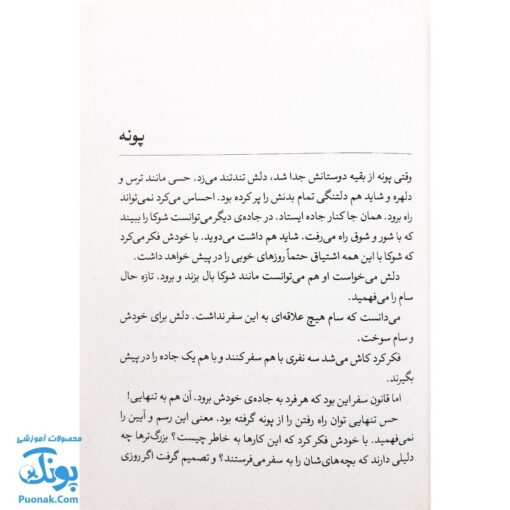 پونه
وقتی پونه از بقیه دوستانش جدا شد، دلش تندتند می‌زد. حسی مانند ترس و
دلهره و شاید هم دلتنگی تمام بدنش را پر کرده بود. احساس می‌کرد نمی‌تواند
راه برود. همان جا کنار جاده ایستاد. در جاده‌ی دیگر می‌توانست شوکا را ببیند
که با شور و شوق راه می‌رفت. شاید هم داشت می‌دوید. با خودش فکر می‌کرد
که شوکا با این همه اشتیاق حتماً روزهای خوبی را در پیش خواهد داشت.
دلش می‌خواست او هم می‌توانست مانند شوکا بال بزند و برود. تازه حال
سام را می‌فهمید.
می‌دانست که سام هیچ علاقه‌ای به این سفر نداشت. دلش برای خودش
و سام سوخت.
فکر کرد کاش می‌شد سه نفری با هم سفر کنند و با هم یک جاده را در پیش
بگیرند.
اما قانون سفر این بود که هر فرد به جاده‌ی خودش برود. آن هم به تنهایی!
حس تنهایی توان راه رفتن را از پونه گرفته بود. معنی این رسم و آیین را
نمی‌فهمید. با خودش فکر کرد که این کارها به خاطر چیست؟ بزرگ‌ترها چه
دلیلی دارند که بچه‌های‌شان را به سفر می‌فرستند؟ و تصمیم گرفت اگر روزی
محصولات آموزشی
پونک
Puonak.Com